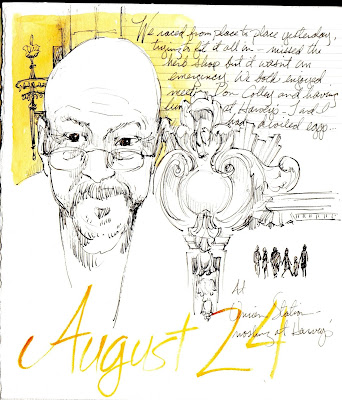 We raced from place to place yesterday,
trying to fit it all in - missed the
herb shop but it wasn't an
emergency. We both enjoyed
meeting Don Colley and having
lunch at Harvey's - J and I
had a boiled egg...
At
Union Station
mostly at Harvey's
August 24